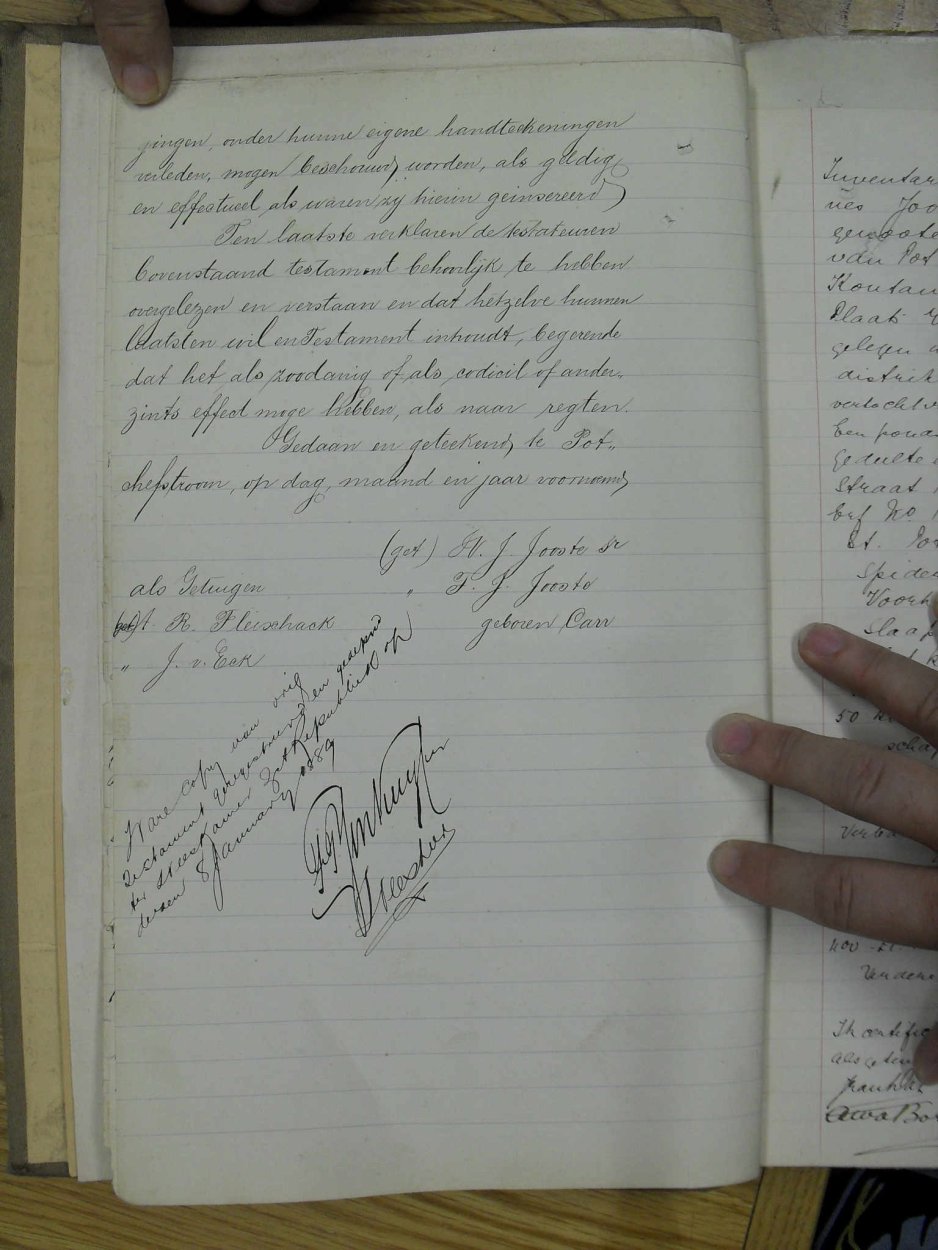 gingen, onder hunne eigene handteekeningen
verleden, mogen beschouwd worden, als geldig
en effectueel als waren zij hierin geinsereerd
Ten laatste verklaren de testateuren
bovenstaand testament behoorlijk te hebben
overgelezen en verstaan en dat hetzelve hunnen
laatsten wil en Testament inhoudt, begerende
dat het als zoodanig of als codicil of ander„
zints effect moge hebben, als naar regten.
Gedaan en geteekend, te Pot„
chefstroom, op dag, maand en jaar voornoemd
(get) J. J. Jooste sr
als Getuigen „ F. J. Jooste
R. Fleischack geboren Carr
„ J. v. Eck
Ware Copy van orig
Testament geregistreerd en
ter Weeskamer ZA Republiek op
dezen 8 January 1889
Weesheer
Inventar
nes Joo
genoote
van Pot
Kontan
Plaats
gelegen
distrik
verkocht
Een
gedeelte
Straat
Erf No
Dt. Pot
Spider
Voorh
Slaap
50
scha
Ik certific
als getui